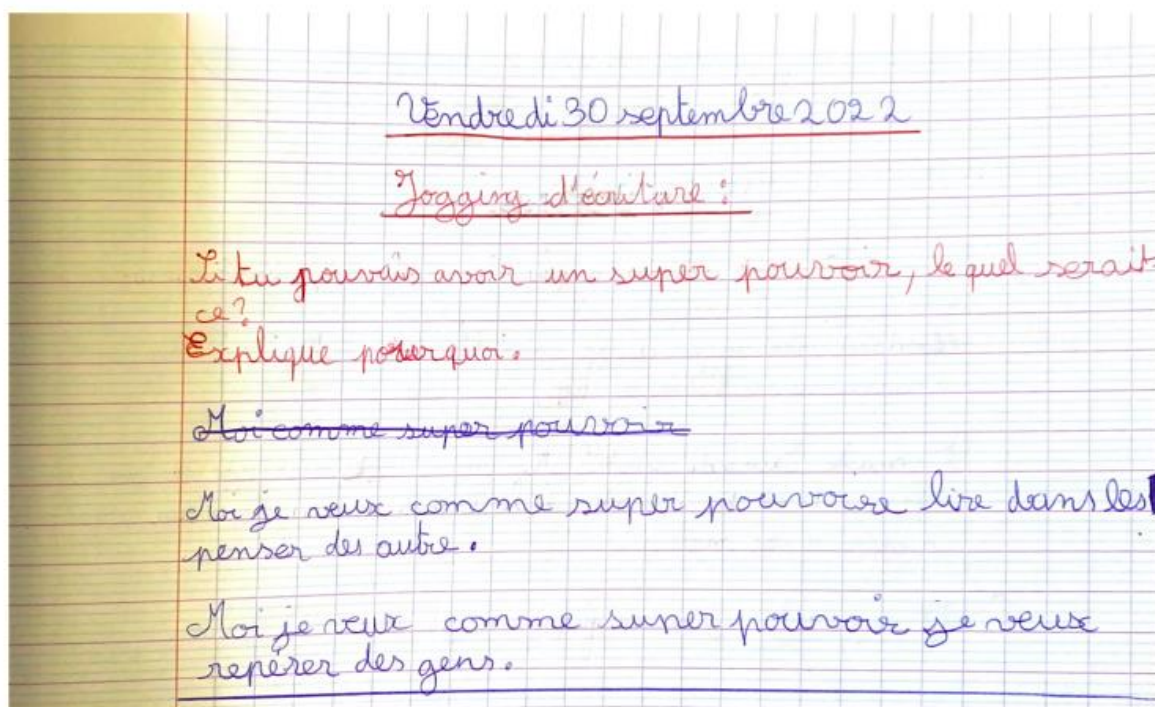 Vendredi 30 septembre 2022
Jogging d'écriture :
Si tu pouvais avoir un super pouvoir, le quel serait-
ce?
Explique pourquoi.
Moi comme super pouvoir
Moi je veux comme super pouvoire lire dans les
penser des autre.
Moi je veux comme super pouvoir je veux
repérer des gens.